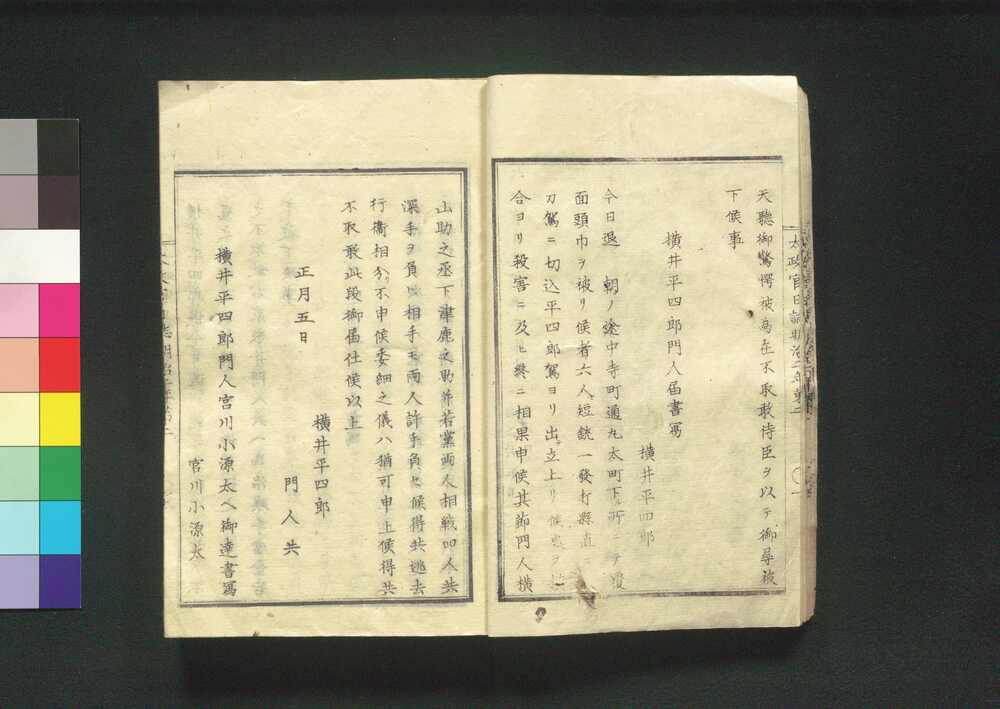 天聽御驚愕被為在不取敢侍臣ヲ以テ御尋被
下候事
横井平四郎門人届書寫
横井平四郎
今日退 朝ノ途中寺町通丸太町下ル所ニテ覆
面頭巾ヲ被リ候者六人短銃一發打掛直
刀駕ニ切込平四郎駕ヨリ出立上リ候
合ヨリ殺害ニ及ヒ終ニ相果申候其節門人横
山助之丞下津鹿之助并若黨両人相戰四人共
深手ヲ負ハ相手モ両人許手負セ候得共逃去
行衞相分リ不申候委細之儀ハ猶可申上候得共
不取敢此段御届仕候以上
正月五日
横井平四郎
門人共
横井平四郎門人宮川小源太ヘ御達書寫
宮川小源太